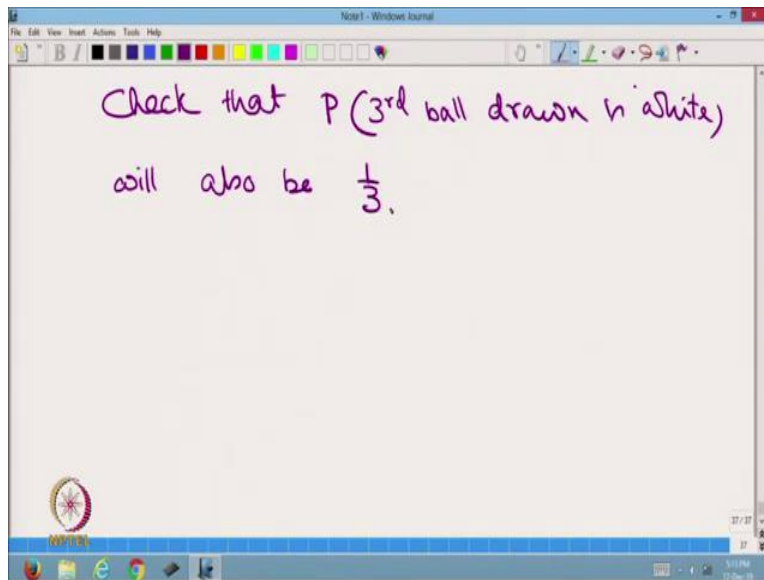 Note1 - Windows Journal
File Edit View Insert Actions Tools Help
B I
Check that P (3rd ball drawn is white)
will also be 1/3.
NPTEL
37/37
37
5:11 PM